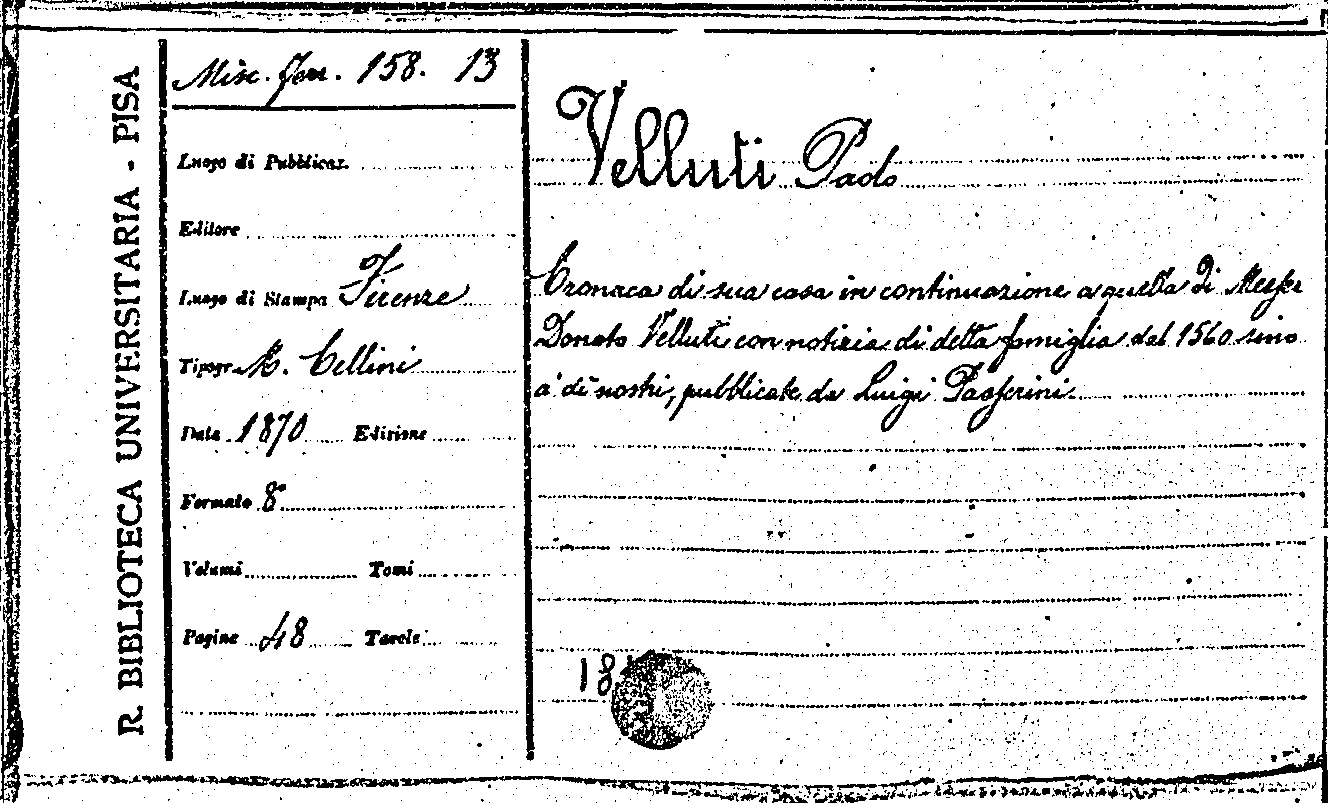 R. BIBLIOTECA UNIVERSITARIA - PISA
Misc. 158. 13
Luogo di Pubblicaz.
Editore
Luogo di Stampa Firenze
Tipogr. M. Cellini
Data 1870 Edizione
Formato 8°
Volumi Tomi
Pagine 48 Tavole
Velluti Paolo
Cronaca di sua casa in continuazione a quella di Messer
Donato Velluti con notizia di detta famiglia dal 1560 sino
a' dì nostri, pubblicate da Luigi Passerini.
18